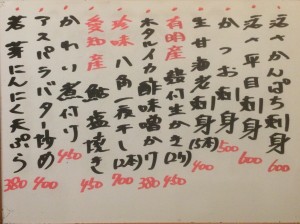 活〆かんぱち刺身 600
活〆平目刺身 600
かつお刺身 500
生甘海老刺身(5本) 400
有明産 殻付生かき(2ケ) 450
ホタルイカ酢味噌かけ 380
珍味 八角一夜干し(2本) 700
愛知産 鮎塩焼き 450
かわり煮付け 450
アスパラバター炒め 400
若芽にんにく天ぷら 380